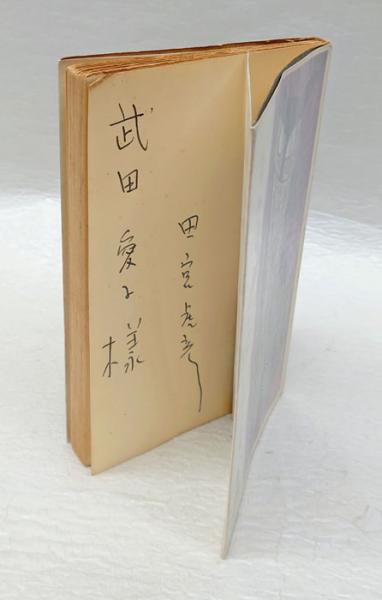 田宮虎彦
武田愛子様